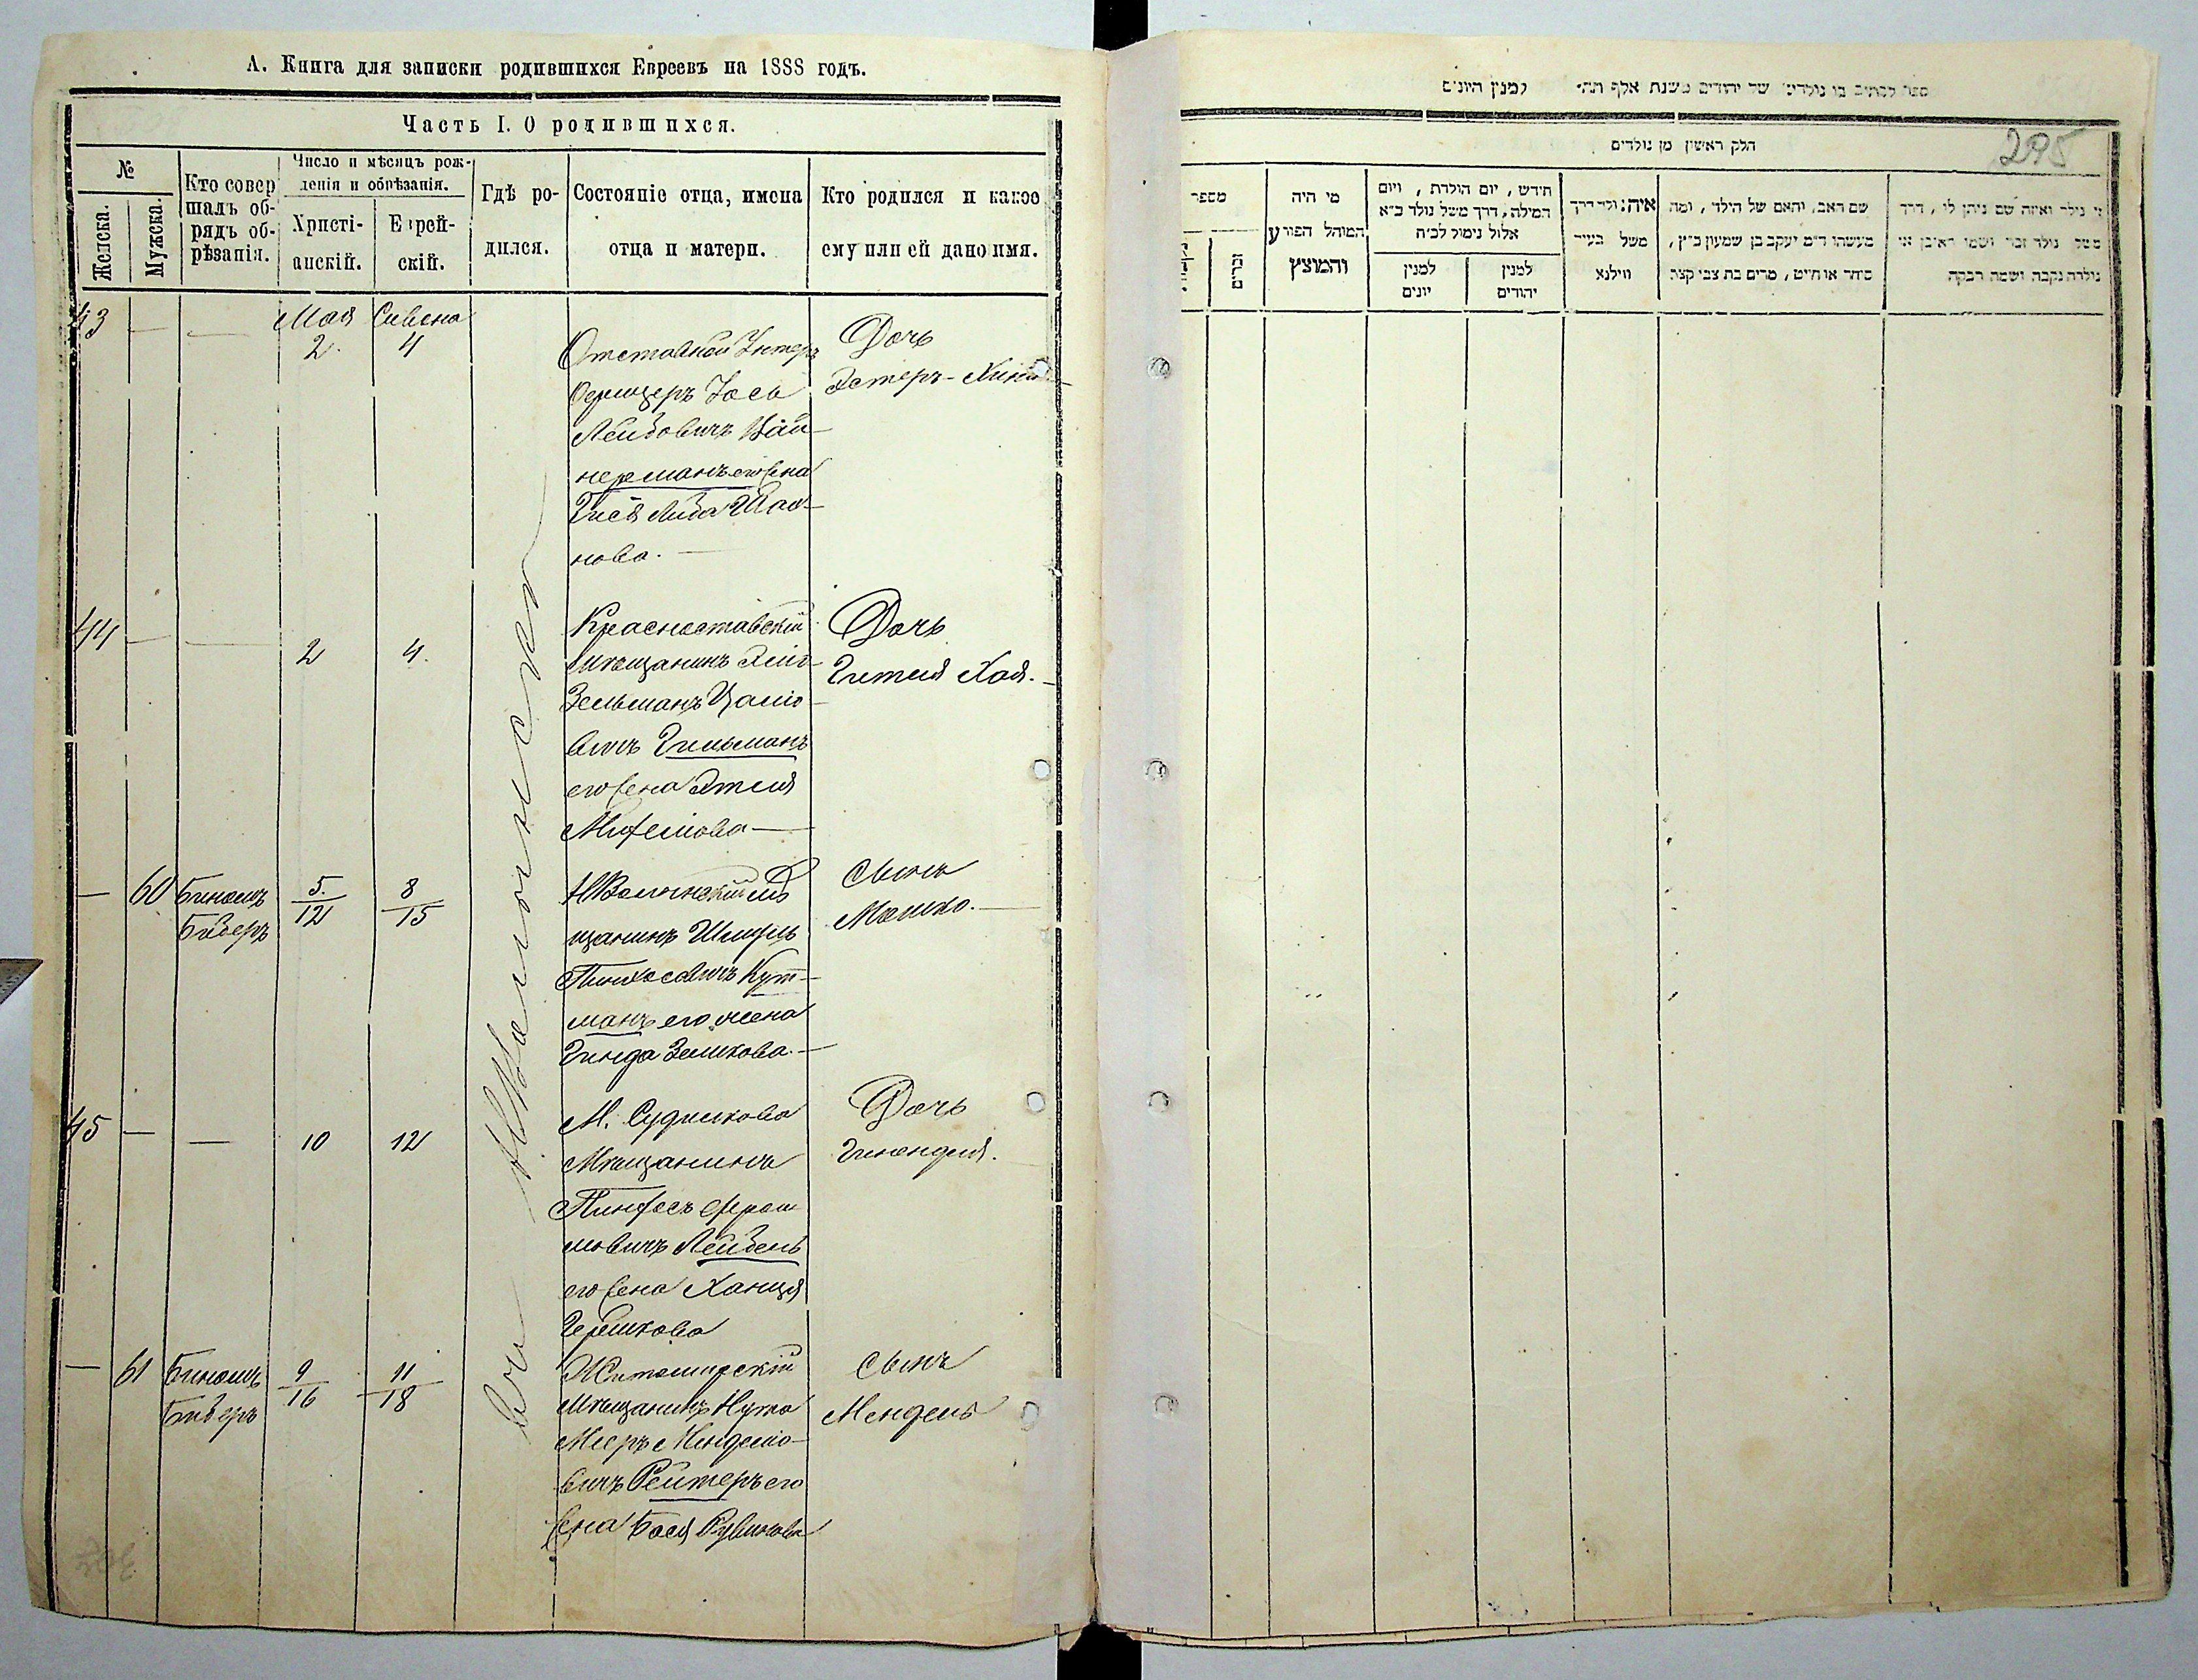 А. Книга для записки родившихся Евреевъ на 1888 годъ.
Часть I. О родившихся.
№
Женска.
Мужска.
Кто совер
шалъ об-
рядъ об-
рѣзанія.
Число и мѣсяцъ рож-
денія и обрѣзанія.
Христі-
анскій.
Еврей-
скій.
Гдѣ ро-
дился.
Состояніе отца, имена
отца и матери.
Кто родился и какое
ему или ей дано имя.
43 — — Мая 2. Сивона 4
Отставной Унтеръ
Офицеръ Іось
Лейбовичъ Вай-
нерманъ его жена
Гися Либа
нова. —
Дочь
Эстеръ-
44 — — 2 4.
Красноставскій
Мѣщанинъ
Зельманъ
вичъ Гильманъ
его жена Этля
Дочь
Гитля Хая.
— 60 Биномъ Бидеръ 5/12 8/15
НВолынскій мѣ
щанинъ Шмуль
Пинхасовичъ Кут-
манъ его жена
Гинда Зеликова. —
Сынъ
Мошко. —
45 — — 10 12
М. Судилкова
Мѣщанинъ
Пинхасъ
мовичъ Лейбель
его жена Ханця
Гершкова
Дочь
Гинендля.
— 61 Биномъ Бидеръ 9/16 11/18
Житомирскій
Мѣщанинъ Нута
Мееръ Менделіо-
вичъ Рейтеръ его
жена Бася Рувинова
Сынъ
Мендель
Въ НВолынскѣ
295
ספר לכתוב בו נולדים של יהודים משנת אלף תת' למנין היונים
חלק ראשון מן נולדים
מספר
זכרים
מי היה
המוהל הפורע
והמוצץ
חודש, יום הולדת, ויום
המילה, דרך משל נולד כ״א
אלול נימול לכ״ח
למנין
יונים
למנין
יהודים
איה נולד דרך
משל בעיר
ווילנא
שם האב, והאם של הילד, ומה
מעשהו ד״מ יעקב בן שמעון כ״ץ,
סוחר או חייט, מרים בת צבי קצב
מי נולד ואיזה שם ניתן לו, דרך
משל נולד זכר ושמו ראובן או
נולדה נקבה ושמה רבקה